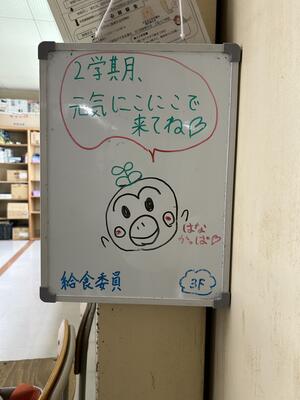 2学期月、
元気にこにこで
来てね♡
はな
かっぱ♡
給食委員
3F